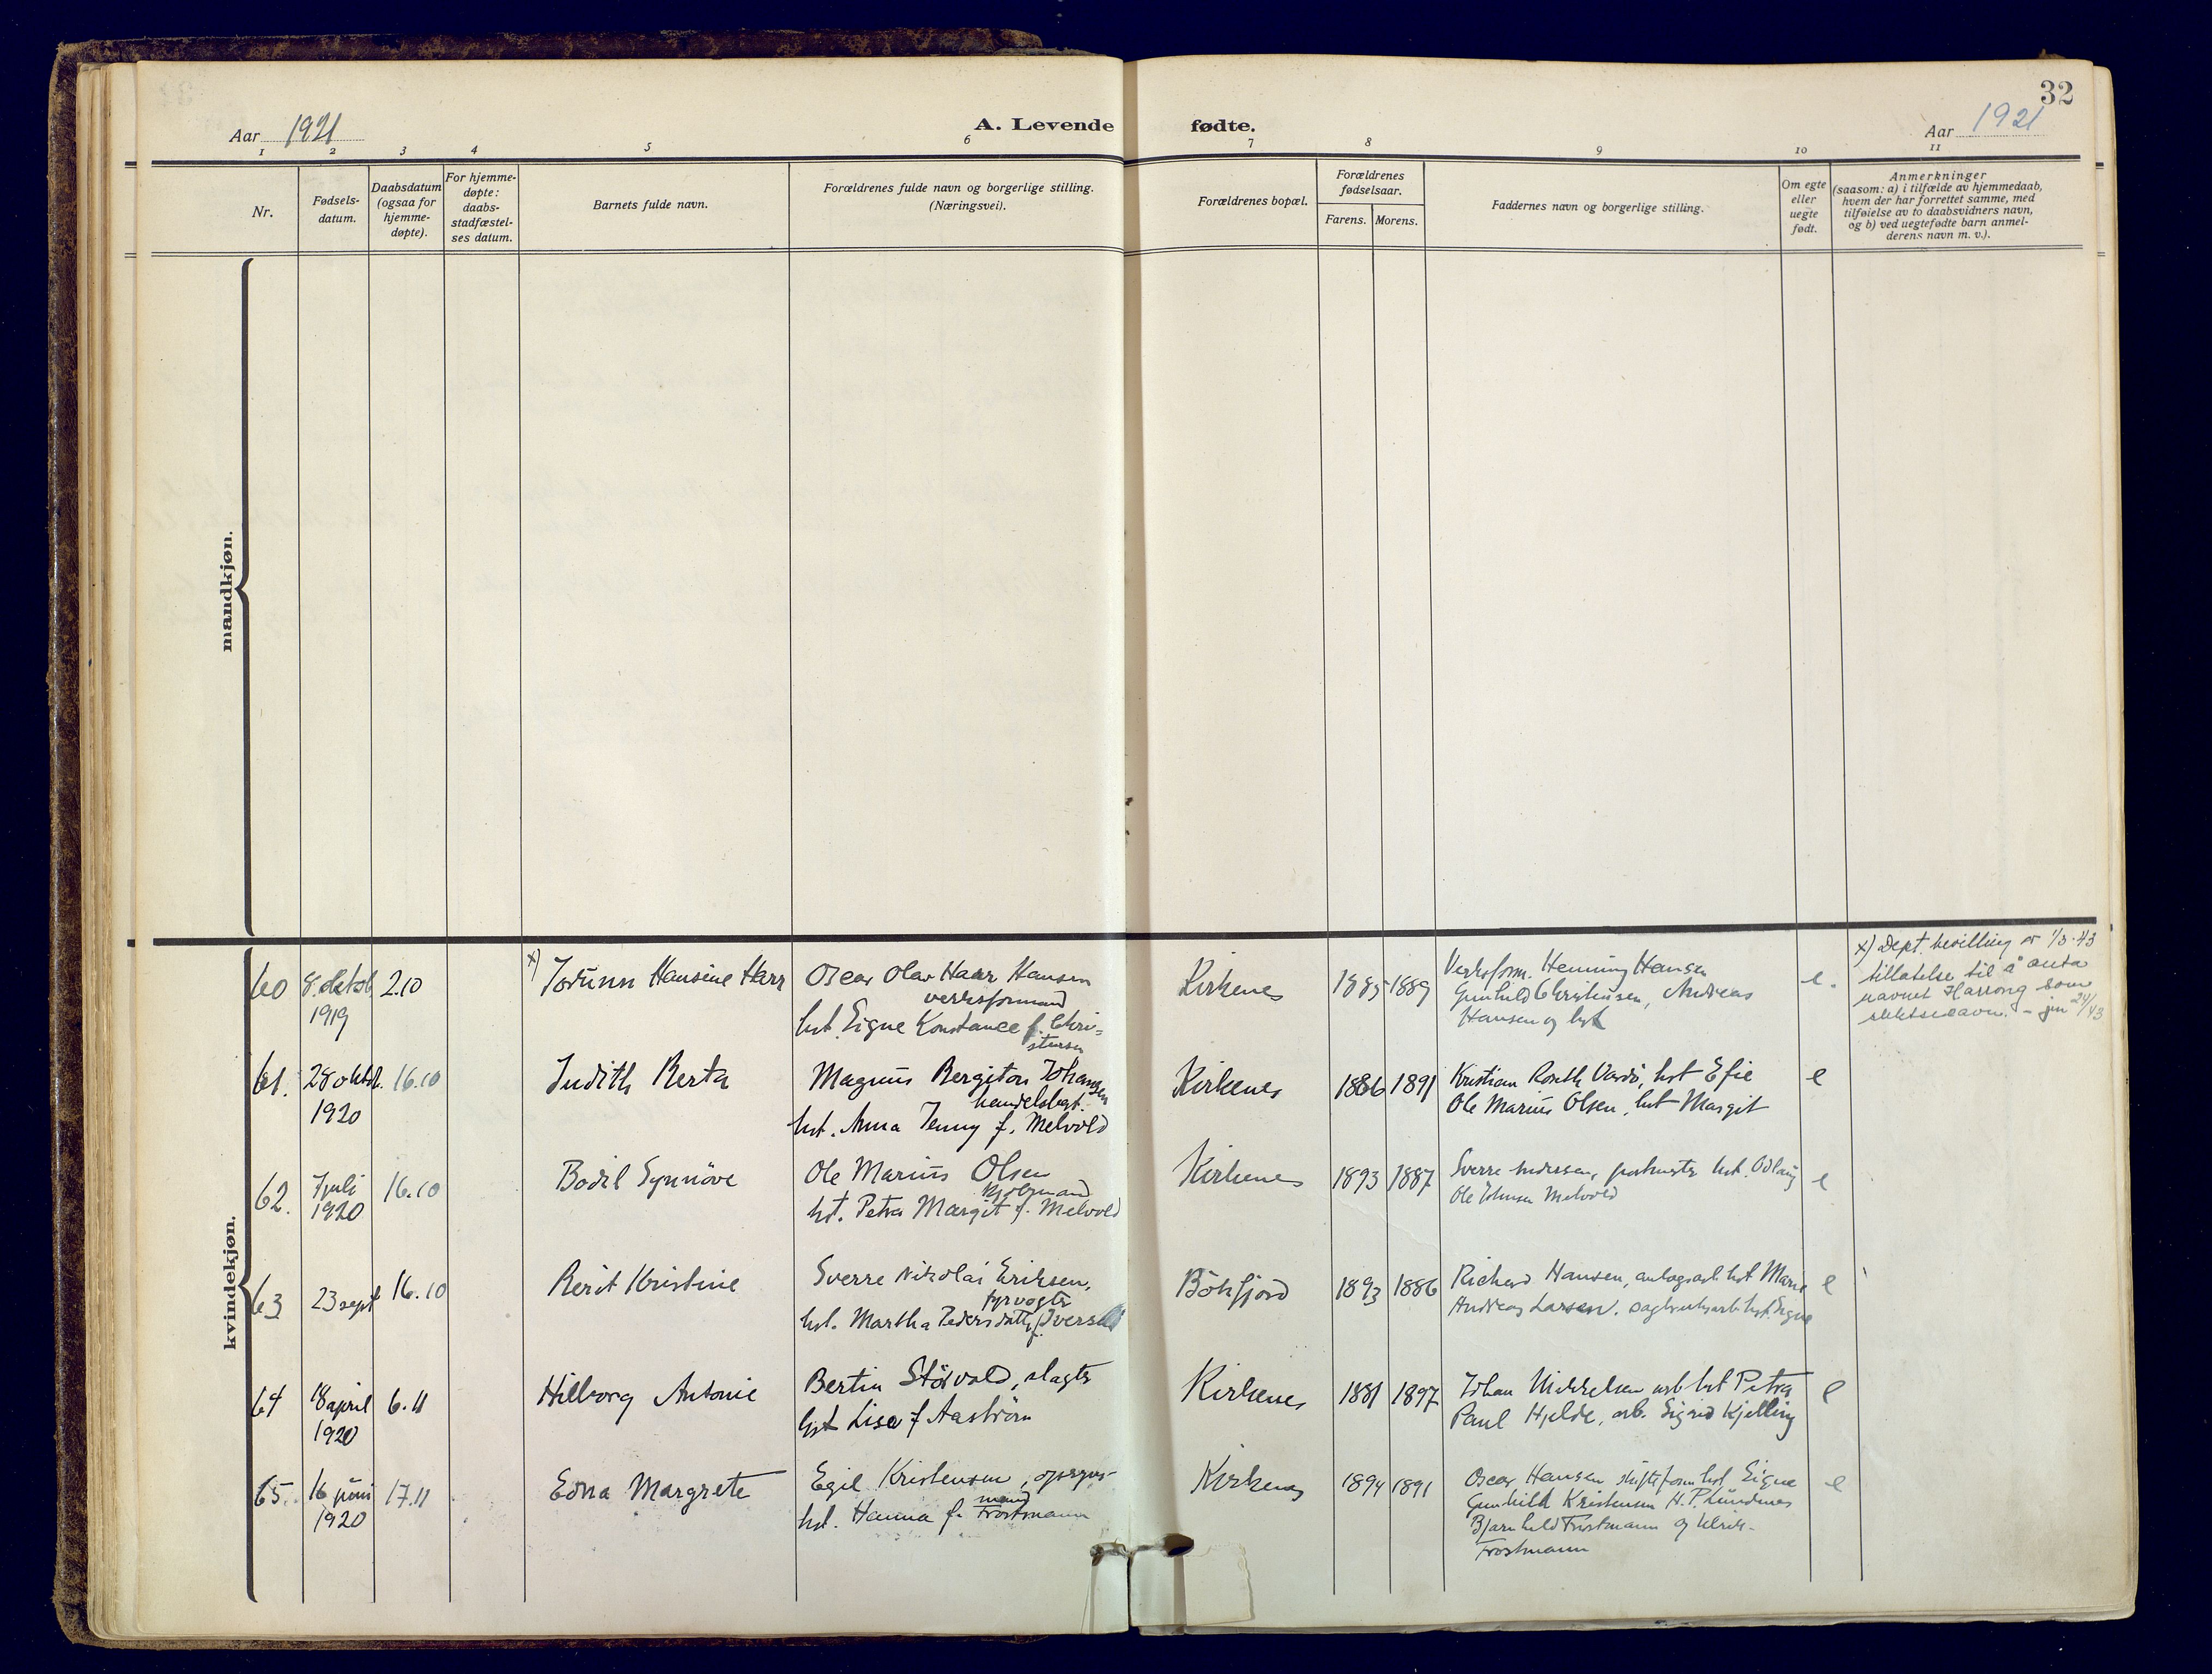 32
Aar 1921
A. Levende fødte.
Aar 1921
1 2 3 4 5 6 7 8 9 10 11
Nr.
Fødsels-
datum.
Daabsdatum
(ogsaa for
hjemme-
døpte).
For hjemme-
døpte:
daabs-
stadfæstel-
ses datum.
Barnets fulde navn.
Forældrenes fulde navn og borgerlige stilling.
(Næringsvei).
Forældrenes bopæl.
Forældrenes
fødselsaar.
Farens. Morens.
Faddernes navn og borgerlige stilling.
Om egte
eller
uegte
født.
Anmerkninger
(saasom: a) i tilfælde av hjemmedaab,
hvem der har forrettet samme, med
tilføielse av to daabsvidners navn,
og b) ved uegtefødte barn anmel-
derens navn m. v.).
mandkjøn.
kvindekjøn.
60
8. oktob.
1919
2.10
x) Jorunn Hansine Harr
Oscar Olav Haar Hansen
verksformand
hst. Signe Konstance f. Chri-
stensen
Kirkenes
1885 1889
Verksform. Henning Hansen
Gunhild Christensen, Andreas
Hansen og hst
e.
x) Dept. bevilling av 1/3-43
tillatelse til å anta
navnet Harrong som
slektsnavn. 24/43
61.
28 oktb.
1920
16.10
Judith Berta
Magnus Bergiton Johansen
handelsbest.
hst. Anna Jenny f. Melvold
Kirkenes
1886 1891
Kristian Vardö, hst Efie
Ole Marius Olsen, hst Margit
e
62.
7 juli
1920
16.10
Bodil Synnöve
Ole Marius Olsen
hst. Petra Margit f. Melvold
Kirkenes
1893 1887
Sverre Andersen, hst. Odlaug
Ole Johnsen Melvold
e
63
23 sept
16.10
Berit Kristine
Sverre Nikolai Eriksen,
fyrvogter
hst. Martha Pedersdatter f. Iversen
Bökfjord
1893 1886
Richard Hansen, anlægsarb. hst Marie
Andreas Larsen. sagbruksarb hst. Signe
e
64
18 april
1920
6.11
Hilborg Antonie
Bertin Stövold, slagter
hst Lisa f Aaström
Kirkenes
1881 1897
Johan Mikkelsen arb hst Petra
Paul Hjelde, arb. Sigrid Kjelling
e
65.
16 juni
1920
17.11
Edna Margrete
Egil Kristensen, opsyns-
mand
hst. Hanna f. Trostmann
Kirkenes
1894 1891
Oscar Hansen skifteform hst Signe
Gunhild Kristensen H. P. Lundenes
Bjarnhild Trostmann og Ulrik
Trostmann
e